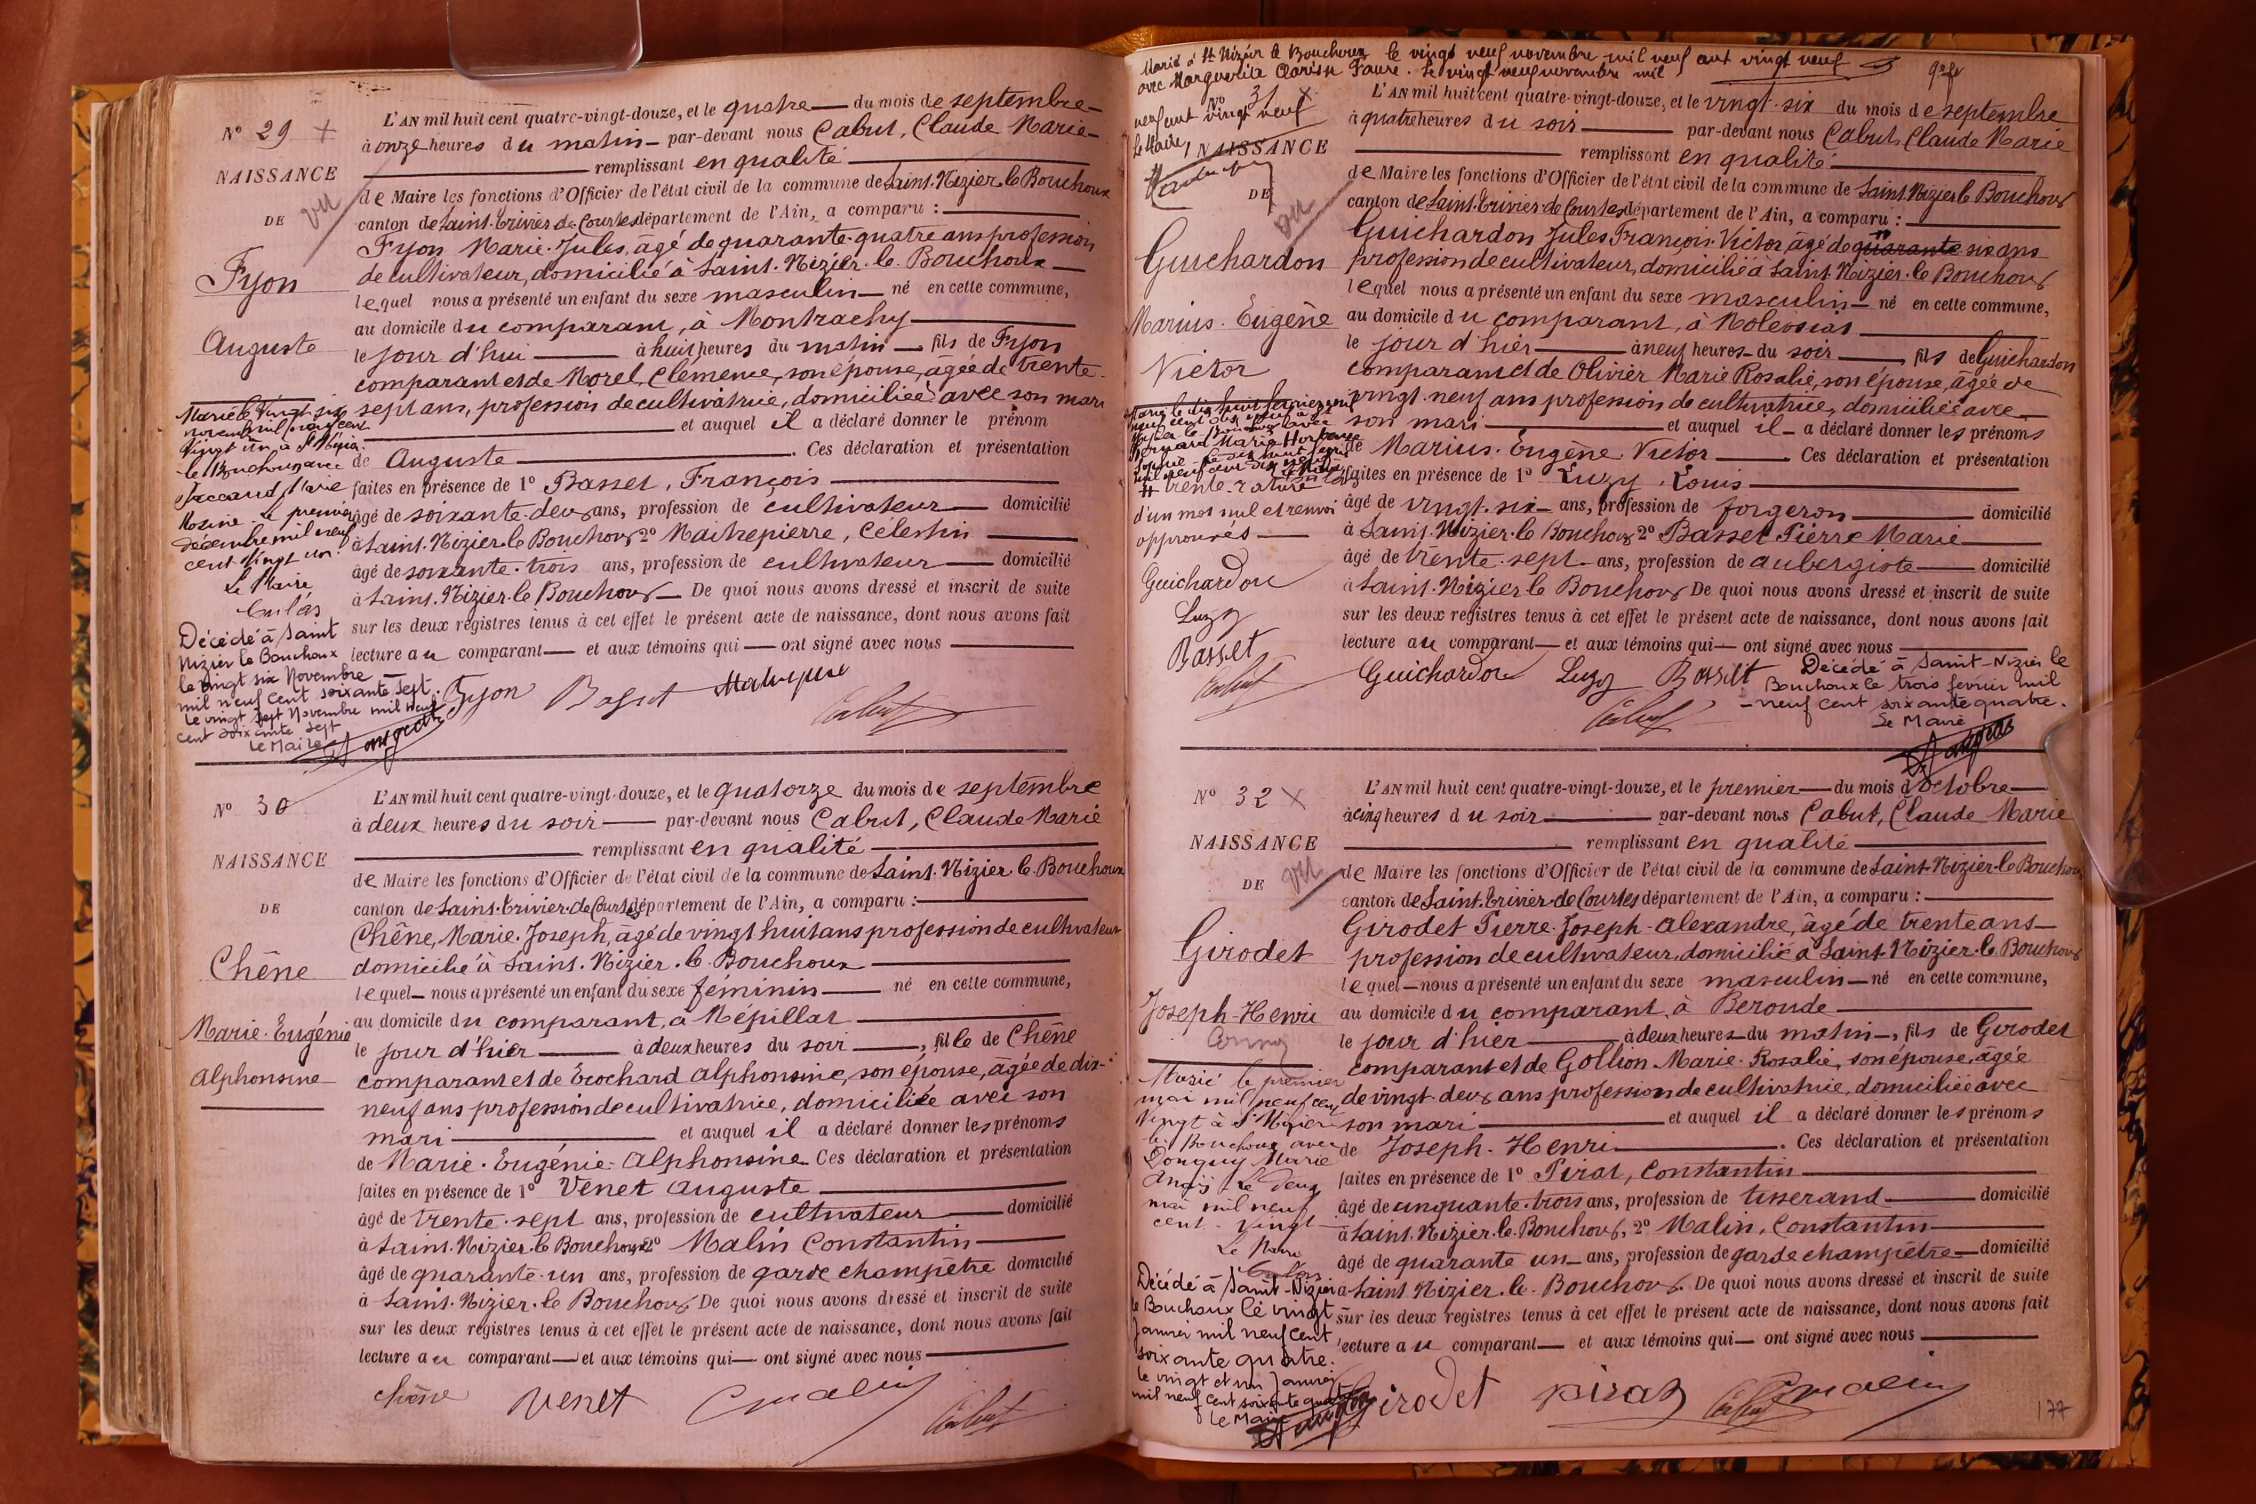 N° 29 +
NAISSANCE
DE
vu
Fyon
Auguste
L'AN mil huit cent quatre-vingt-douze, et le quatre du mois de septembre
à onze heures du matin par-devant nous Cabut, Claude Marie
remplissant en qualité
de Maire les fonctions d'Officier de l'état civil de la commune de Saint-Nizier-le-Bouchoux
canton de Saint-Trivier-de-Courtes département de l'Ain, a comparu :
Fyon Marie-Jules, âgé de quarante-quatre ans profession
de cultivateur, domicilié à Saint-Nizier-le-Bouchoux
lequel nous a présenté un enfant du sexe masculin né en cette commune,
au domicile du comparant, à Montrachy
le jour d'hui à huit heures du matin fils de Fyon
comparant et de Morel, Clémence, son épouse, âgée de trente-
sept ans, profession de cultivatrice, domiciliée avec son mari
et auquel il a déclaré donner le prénom
de Auguste. Ces déclaration et présentation
faites en présence de 1° Basset, François
âgé de soixante-deux ans, profession de cultivateur domicilié
à Saint-Nizier-le-Bouchoux 2° Maitrepierre, Célestin
âgé de soixante-trois ans, profession de cultivateur domicilié
à Saint-Nizier-le-Bouchoux De quoi nous avons dressé et inscrit de suite
sur les deux registres tenus à cet effet le présent acte de naissance, dont nous avons fait
lecture au comparant et aux témoins qui ont signé avec nous
Fyon Basset Maitrepierre
Cabut
Marié le vingt six
novembre mil neuf cent
vingt un à St Nizier
le Bouchoux avec
Jaccaud, Marie
Rosine. Le premier
décembre mil neuf
cent vingt un.
Le Maire
Décédé à Saint
Nizier le Bouchoux
le vingt six Novembre
mil neuf cent soixante sept.
Le vingt sept Novembre mil neuf
cent soixante sept
Le Maire
N° 30
NAISSANCE
DE
Chêne
Marie-Eugénie
Alphonsine
L'AN mil huit cent quatre-vingt-douze, et le quatorze du mois de septembre
à deux heures du soir par-devant nous Cabut, Claude Marie
remplissant en qualité
de Maire les fonctions d'Officier de l'état civil de la commune de Saint-Nizier-le-Bouchoux
canton de Saint-Trivier-de-Courtes département de l'Ain, a comparu :
Chêne, Marie-Joseph, âgé de vingt huit ans profession de cultivateur
domicilié à Saint-Nizier-le-Bouchoux
lequel nous a présenté un enfant du sexe féminin né en cette commune,
au domicile du comparant, à Mépillat
le jour d'hier à deux heures du soir, fille de Chêne
comparant et de Ecochard Alphonsine, son épouse, âgée de dix-
neuf ans profession de cultivatrice, domiciliée avec son
mari et auquel il a déclaré donner les prénoms
de Marie-Eugénie-Alphonsine Ces déclaration et présentation
faites en présence de 1° Venet Auguste
âgé de trente-sept ans, profession de cultivateur domicilié
à Saint-Nizier-le-Bouchoux 2° Malin Constantin
âgé de quarante-un ans, profession de garde champêtre domicilié
à Saint-Nizier-le-Bouchoux De quoi nous avons dressé et inscrit de suite
sur les deux registres tenus à cet effet le présent acte de naissance, dont nous avons fait
lecture au comparant et aux témoins qui ont signé avec nous
Chêne Venet C Malin
Cabut
Marié à St Nizier le Bouchoux le vingt neuf novembre mil neuf cent vingt neuf
avec Marguerite Clarisse Faure. Le vingt neuf novembre mil
neuf cent vingt neuf
Le Maire
N° 31 x
NAISSANCE
DE
vu
Guichardon
Marius-Eugène
Victor
L'AN mil huit cent quatre-vingt-douze, et le vingt-six du mois de septembre
à quatre heures du soir par-devant nous Cabut, Claude Marie
remplissant en qualité
de Maire les fonctions d'Officier de l'état civil de la commune de Saint-Nizier-le-Bouchoux
canton de Saint-Trivier-de-Courtes département de l'Ain, a comparu :
Guichardon Jules François-Victor âgé de quarante six ans
profession de cultivateur, domicilié à Saint-Nizier-le-Bouchoux
lequel nous a présenté un enfant du sexe masculin né en cette commune,
au domicile du comparant, à Molévoias
le jour d'hier à neuf heures du soir, fils de Guichardon
comparant et de Olivier Marie Rosalie, son épouse, âgée de
vingt-neuf ans profession de cultivatrice, domiciliée avec
son mari et auquel il a déclaré donner les prénoms
de Marius-Eugène Victor Ces déclaration et présentation
faites en présence de 1° Luzy, Louis
âgé de vingt-six ans, profession de forgeron domicilié
à Saint-Nizier-le-Bouchoux 2° Basset Pierre Marie
âgé de trente-sept ans, profession de aubergiste domicilié
à Saint-Nizier-le-Bouchoux De quoi nous avons dressé et inscrit de suite
sur les deux registres tenus à cet effet le présent acte de naissance, dont nous avons fait
lecture au comparant et aux témoins qui ont signé avec nous
Guichardon Luzy Basset
Cabut
# trente. rature
d'un mot nul et renvoi
approuvés
Guichardon
Luzy
Basset
Cabut
Décédé à Saint-Nizier le
Bouchoux le trois février mil
neuf cent soixante quatre.
Le Maire
N° 32 x
NAISSANCE
DE
vu
Girodet
Joseph-Henri
L'AN mil huit cent quatre-vingt-douze, et le premier du mois d'octobre
à cinq heures du soir par-devant nous Cabut, Claude Marie
remplissant en qualité
de Maire les fonctions d'Officier de l'état civil de la commune de Saint-Nizier-le-Bouchoux
canton de Saint-Trivier-de-Courtes département de l'Ain, a comparu :
Girodet Pierre-Joseph-Alexandre, âgé de trente ans
profession de cultivateur, domicilié à Saint-Nizier-le-Bouchoux
lequel nous a présenté un enfant du sexe masculin né en cette commune,
au domicile du comparant, à Beroude
le jour d'hier à deux heures du matin, fils de Girodet
comparant et de Gollion Marie-Rosalie, son épouse, âgée
de vingt-deux ans profession de cultivatrice, domiciliée avec
son mari et auquel il a déclaré donner les prénoms
de Joseph-Henri. Ces déclaration et présentation
faites en présence de 1° Pirat, Constantin
âgé de cinquante-trois ans, profession de tisserand domicilié
à Saint-Nizier-le-Bouchoux, 2° Malin, Constantin
âgé de quarante un ans, profession de garde champêtre domicilié
à Saint-Nizier-le-Bouchoux. De quoi nous avons dressé et inscrit de suite
sur les deux registres tenus à cet effet le présent acte de naissance, dont nous avons fait
lecture au comparant et aux témoins qui ont signé avec nous
Girodet Pirat C Malin
Cabut
Marié le premier
mai mil neuf cent
vingt à St Nizier
le Bouchoux avec
Donguy Marie
Anaïs Le deux
mai mil neuf
cent vingt
Le Maire
Décédé à Saint-Nizier
le Bouchoux le vingt
Janvier mil neuf cent
soixante quatre.
le vingt et un Janvier
mil neuf cent soixante quatre
Le Maire
177